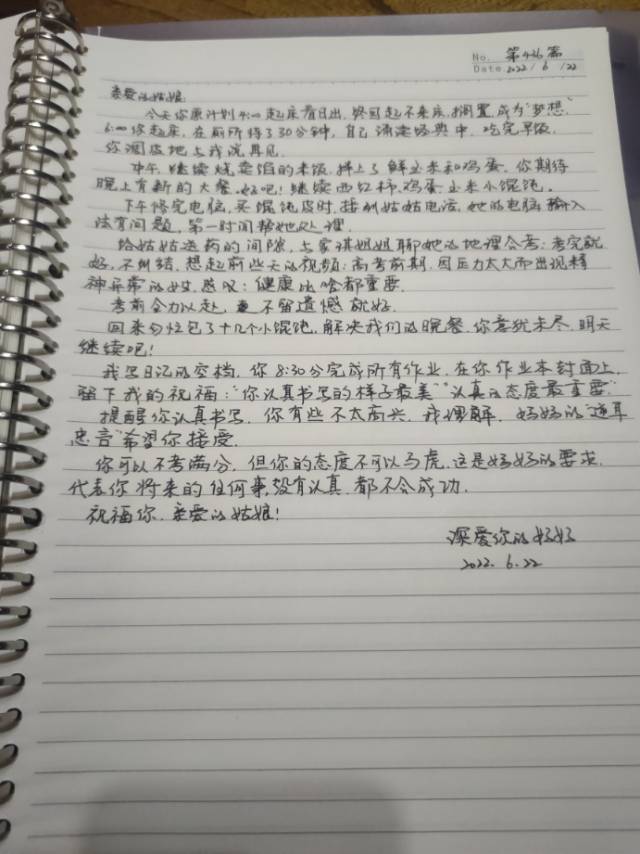 No. 第436篇
Date 2022 / 6 / 22
亲爱的姑娘:
今天你原计划4:00起床看日出,终因起不来床,搁置,成为"梦想".
6:00你起床,在厕所待了30分钟,自己清洗经典中.吃完早饭,
你调皮地与我说再见.
中午,继续烧卖馅的米饭,拌上了鲜玉米和鸡蛋.你期待
晚上有新的大餐.好吧!继续西红柿鸡蛋玉米小馄饨.
下午修完电脑,买馄饨皮时,接到姑姑电话,她的电脑输入
法有问题,第一时间帮她处理.
给姑姑送药的间隙,与 琪姐姐聊她的地理会考:考完就
好,不纠结.想起前些天的视频:高考前期,因压力太大而出现精
神异常的 .感叹:健康比啥都重要.
考前全力以赴,不留遗憾就好.
回来匆忙包了十几个小馄饨,解决我们的晚餐.你意犹未尽,明天
继续吧!
我写日记的空档,你8:30分完成所有作业.在你作业本封面上,
留下我的祝福:"你认真书写的样子最美""认真的态度最重要".
提醒你认真书写,你有些不太高兴,我理解.妈妈的"逆耳
忠言"希望你接受.
你可以不考满分,但你的态度不可以马虎.这是妈妈的要求,
代表你将来的任何事,没有认真,都不会成功.
祝福你,亲爱的姑娘!
深爱你的妈妈
2022.6.22